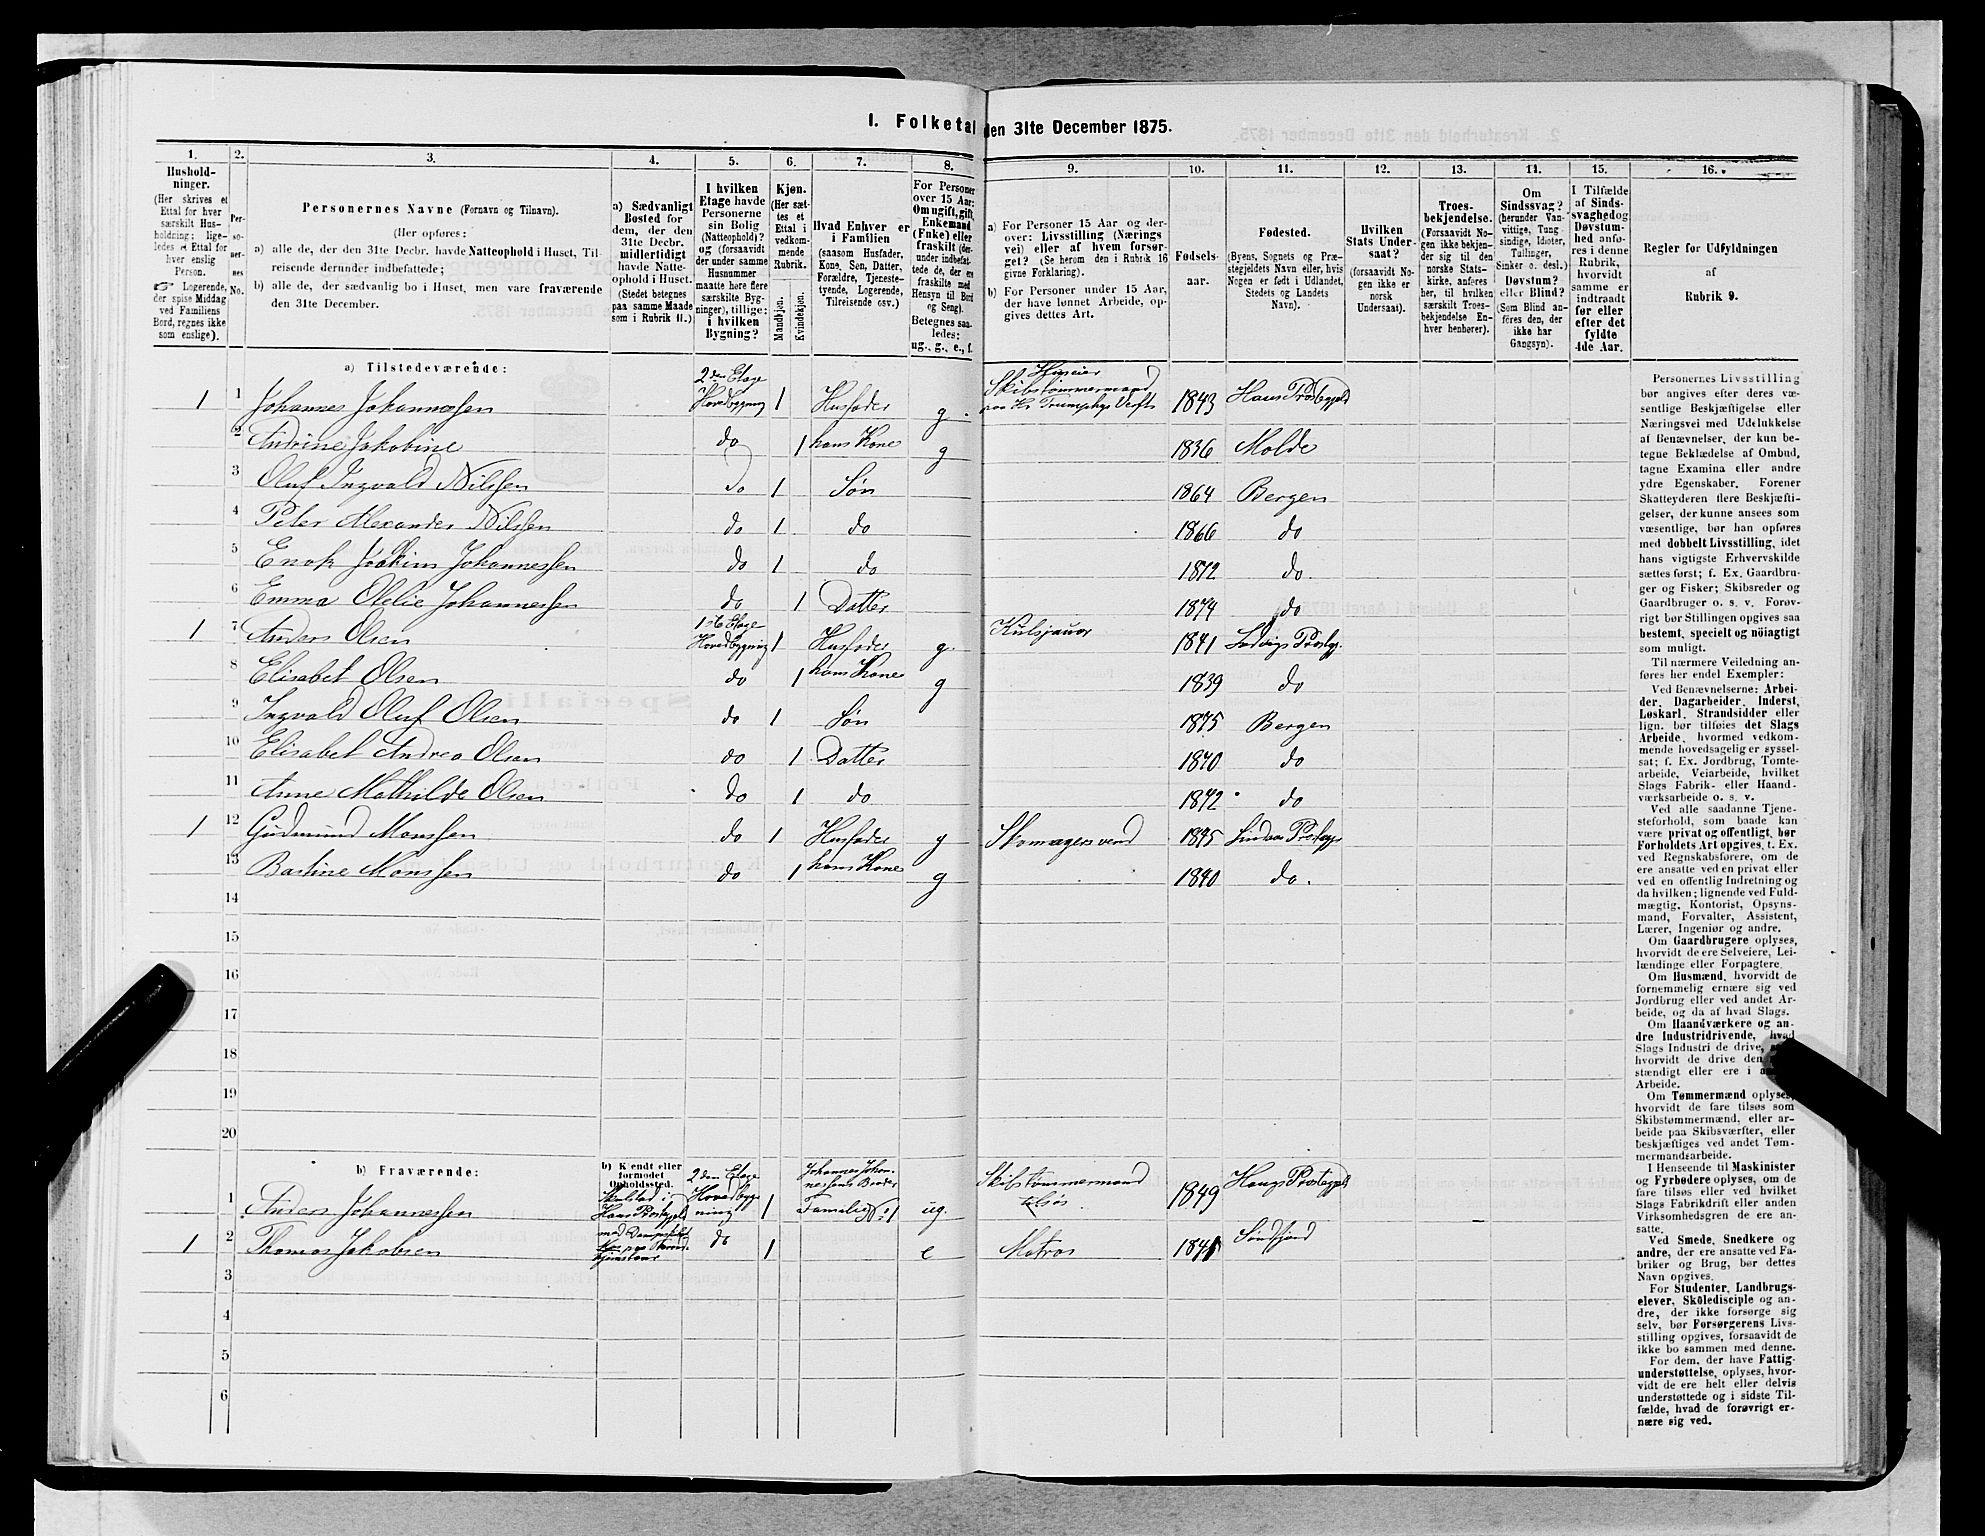 I. Folketal den 31te December 1875.
1. 2. 3. 4. 5. 6. 7. 8. 9. 10. 11. 12. 13. 14. 15. 16.
Hushold-
ninger.
(Her skrives et
Ettal for hver
særskilt Hus-
holdning; lige-
ledes et Ettal for
hver enslig
Person.
☞ Logerende,
der spise Middag
ved Familiens
Bord, regnes ikke
som enslige).
Per-
so-
ner-
nes
No.
Personernes Navne (Fornavn og Tilnavn).
(Her opføres:
a) alle de, der den 31te Decbr. havde Natteophold i Huset, Til-
reisende derunder indbefattede;
b) alle de, der sædvanlig bo i Huset, men vare fraværende
den 31te December.
a) Sædvanligt
Bosted for
dem, der den
31te Decbr.
midlertidigt
havde Natte-
ophold i Huset.
(Stedet betegnes
paa samme Maade
som i Rubrik 11.)
I hvilken
Etage havde
Personerne
sin Bolig
(Natteophold)?
og (forsaavidt
der under samme
Husnummer
maatte høre flere
særskilte Byg-
ninger), tillige:
i hvilken
Bygning?
Kjøn.
(Her sæt-
tes et
Ettal i
vedkom-
mende
Rubrik.
Mandkjøn.
Kvindekjøn.
Hvad Enhver er
i Familien
(saasom Husfader,
Kone, Søn, Datter,
Forældre, Tjeneste-
tyende, Logerende,
Tilreisende osv.)
For Personer
over 15 Aar:
Om ugift, gift,
Enkemand
(Enke) eller
fraskilt (der-
under indbefat-
tede de, der ere
fraskilte med
Hensyn til Bord
og Seng).
Betegnes saa-
ledes:
ug., g., e., f.
a) For Personer 15 Aar og der-
over: Livsstilling (Nærings
vei) eller af hvem forsør-
get? (Se herom den i Rubrik 16
givne Forklaring).
b) For Personer under 15 Aar,
der have lønnet Arbeide, op-
gives dettes Art.
Fødsels-
aar.
Fødested.
(Byens, Sognets og Præ-
stegjeldets Navn eller, hvis
Nogen er født i Udlandet,
Stedets og Landets
Navn).
Hvilken
Stats Under-
saat?
(forsaavidt No-
gen ikke er
norsk
Undersaat).
Troes-
bekjendelse.
(Forsaavidt No-
gen ikke bekjen-
der sig til den
norske Stats-
kirke, anføres
her, til hvilken
særskilt Troes-
bekjendelse En-
hver henhører).
Om
Sindssvag?
(herunder Van-
vittige, Tung-
sindige, Idioter,
Tullinger,
Sinker o. desl.)
Døvstum?
eller Blind?
(Som Blind an-
føres den, der
ikke har
Gangsyn).
I Tilfælde
af Sinds-
svaghed og
Døvstum-
hed anfø-
res i denne
Rubrik,
hvorvidt
samme er
indtraadt
før eller
efter det
fyldte
4de Aar.
Regler for Udfyldningen
af
Rubrik 9.
a) Tilstedeværende:
1 1 Johannes Johannessen 2den Etage Hovedbygning 1 Husfader g. Huseier Skibstømmermand paa Kr Trumphys Verft 1843 Haus Præstegjeld
2 Andrine Jakobine do 1 hans Kone g 1836 Molde
3 Oluf Ingvald Nilssen do 1 Søn 1864 Bergen
4 Peter Alexander Nilssen do 1 do 1866 do
5 Enok Joakim Johannessen do 1 do 1872 do.
6 Emma Otelie Johannessen do 1 Datter 1874 do
1 7 Anders Olsen 1ste Etage Hovedbygning 1 Husfader g. Kulsjauer 1841 Præstegj.
8 Elisabet Olsen do 1 hans Kone g 1839 do
9 Ingvald Oluf Olsen do 1 Søn 1875 Bergen
10 Elisabet Andrea Olsen do 1 Datter 1870 do
11 Anne Mathilde Olsen do 1 do 1872 do
1 12 Gudmund Monssen do 1 Husfader g Skomagersvend 1845 Lindaas Præstegj
13 Bastine Monssen do 1 hans Kone g 1840 do.
14
15
16
17
18
19
20
b) Fraværende:
b) Kjendt eller
formodet
Opholdssted.
1 Anders Johannessen i Haus Præstegjeld 2den Etage Hovedbygning 1 Johannes Johannessens Broder Familie No 1 ug. Skibstømmermand tilsøs 1849 Haus Præstegjeld
1 2 Thomas Jakobsen med paa do 1 e Matros 1841 Søndfjord
3
4
5
6
Personernes Livsstilling
bør angives efter deres væ-
sentlige Beskjæftigelse eller
Næringsvei med Udelukkelse
af Benævnelser, der kun be-
tegne Beklædelse af Ombud,
tagne Examina eller andre
ydre Egenskaber. Forener
Skatteyderen flere Beskjæfti-
gelser, der kunne ansees som
væsentlige, bør han opføres
med dobbelt Livsstilling, idet
hans vigtigste Erhvervskilde
sættes først; f. Ex. Gaardbru-
ger og Fisker; Skibsreder og
Gaardbruger o. s. v. Forøv-
rigt bør Stillingen opgives saa
bestemt, specielt og nöiagtigt
som muligt.
Til nærmere Veiledning an-
føres her endel Exempler:
Ved Benævnelserne: Arbei-
der, Dagarbeider, Inderst,
Løskarl, Strandsidder eller
lign. bør tilføies det Slags
Arbeide, hvormed vedkom-
mende hovedsagelig er syssel-
sat; f. Ex. Jordbrug, Tomte-
arbeide, Veiarbeide, hvilket
Slags Fabrik- eller Haand-
værksarbeide o. s. v.
Ved alle saadanne Tjene-
steforhold, som baade kan
være privat og offentligt, bør
Forholdets Art opgives, t. Ex.
ved Regnskabsførere, om de
ere ansatte ved en privat eller
ved en offentlig Indretning og
da hvilken; lignende ved Fuld-
mægtig, Kontorist, Opsyns-
mand, Forvalter, Assistent,
Lærer, Ingeniør og andre.
Om Gaardbrugere oplyses,
hvorvidt de ere Selveiere, Lei-
lændinge eller Forpagtere.
Om Husmænd, hvorvidt de
fornemmelig ernære sig ved
Jordbrug eller ved andet Ar-
beide, og da af hvad Slags.
Om Haandværkere og an-
dre Industridrivende, hvad
Slags Industri de drive,
hvorvidt de drive den
stændigt eller ere i
Arbeide.
Om Tømmermænd oplyses,
hvorvidt de fare tilsøs som
Skibstømmermænd, eller ar-
beide paa Skibsværfter, eller
beskjæftiges ved andet Tøm-
mermandsarbeide.
I Henseende til Maskinister
og Fyrbødere oplyses, om de
fare tilsøs eller ved hvilket
Slags Fabrikdrift eller anden
Virksomhedsgren de ere an-
satte.
Ved Smede, Snedkere og
andre, der ere ansatte ved Fa-
briker og Brug, bør dettes
Navn opgives.
For Studenter, Landbrugs-
elever, Skoledisciple og an-
dre, der ikke forsørge sig
selv, bør Forsørgerens Livs-
stilling opgives, forsaavidt de
ikke bo sammen med denne.
For dem, der have Fattig-
understøttelse, oplyses, hvor-
vidt de ere helt eller delvis
understøttede og i sidste Til-
fælde, hvad de forøvrigt er-
nære sig ved.